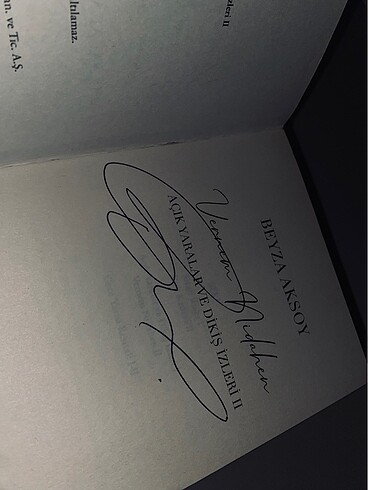 zleri II
ltılamaz.
an. ve Tic. A.Ş.
BEYZA AKSOY
Vennem Nidahen
AÇIK YARALAR VE DİKİŞ İZLERİ II